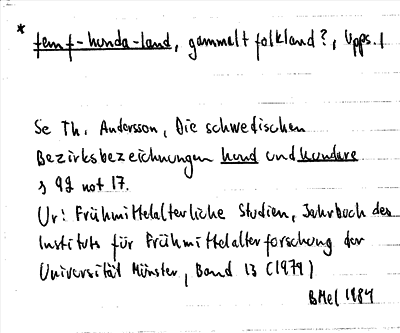 * fem f-hunda-land, gammalt folkland?, Upps. l
Se Th. Andersson, Die schwedischen
Bezirksbezeichnungen hund und hundare
s 92 not 17.
Ur: Frühmittelalterliche Studien, Jahrbuch des
Instituts für Frühmittelalterforschung der
Universität Münster, Band 13 (1979)
BMel 1984